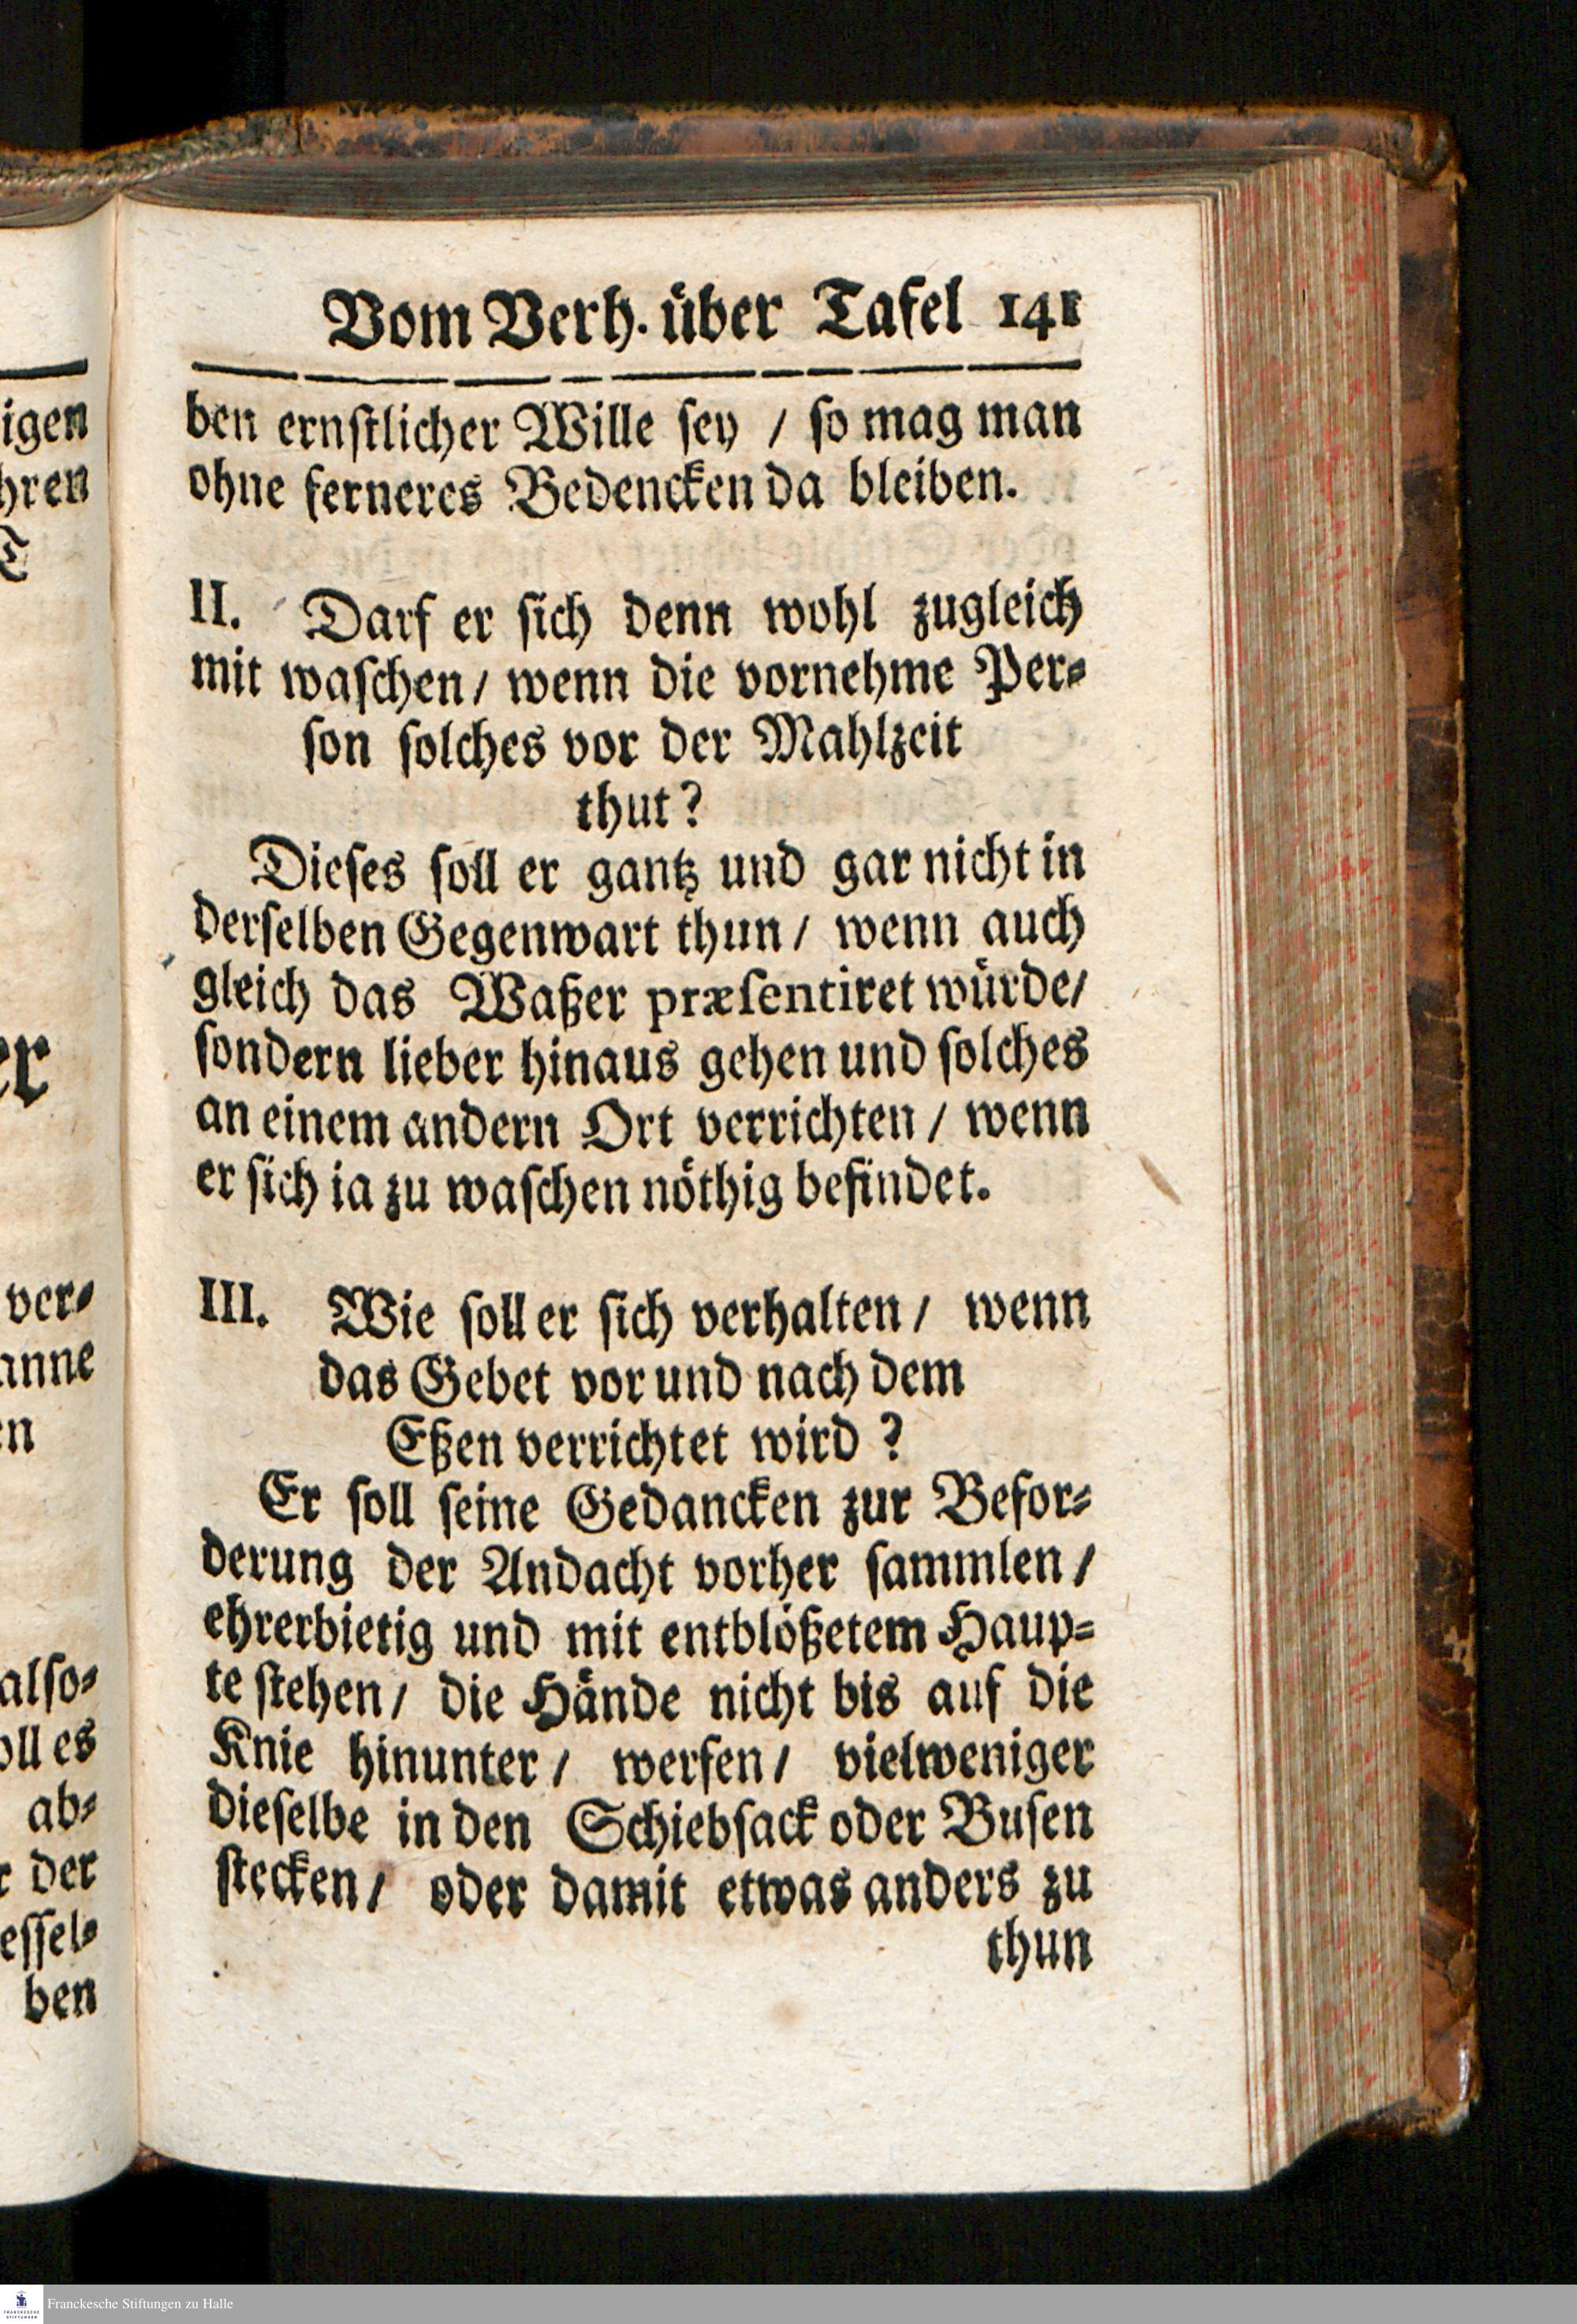 Vom Verh. über Tafel 141
ben ernstlicher Wille sey / so mag man
ohne ferneres Bedencken da bleiben.
II. Darf er sich denn wohl zugleich
mit waschen / wenn die vornehme Per-
son solches vor der Mahlzeit
thut?
Dieses soll er gantz und gar nicht in
derselben Gegenwart thun / wenn auch
gleich das Waßer præsentiret würde /
sondern lieber hinaus gehen und solches
an einem andern Ort verrichten / wenn
er sich ia zu waschen nöthig befindet.
III. Wie soll er sich verhalten / wenn
das Gebet vor und nach dem
Eßen verrichtet wird?
Er soll seine Gedancken zur Befor-
derung der Andacht vorher sammlen /
ehrerbietig und mit entblößetem Haup-
te stehen / die Hände nicht bis auf die
Knie hinunter / werfen / vielweniger
dieselbe in den Schiebsack oder Busen
stecken / oder damit etwas anders zu
thun
igen
hren
T
er
ver-
anne
en
also-
oll es
ab-
r der
essel-
ben
Franckesche Stiftungen zu Halle